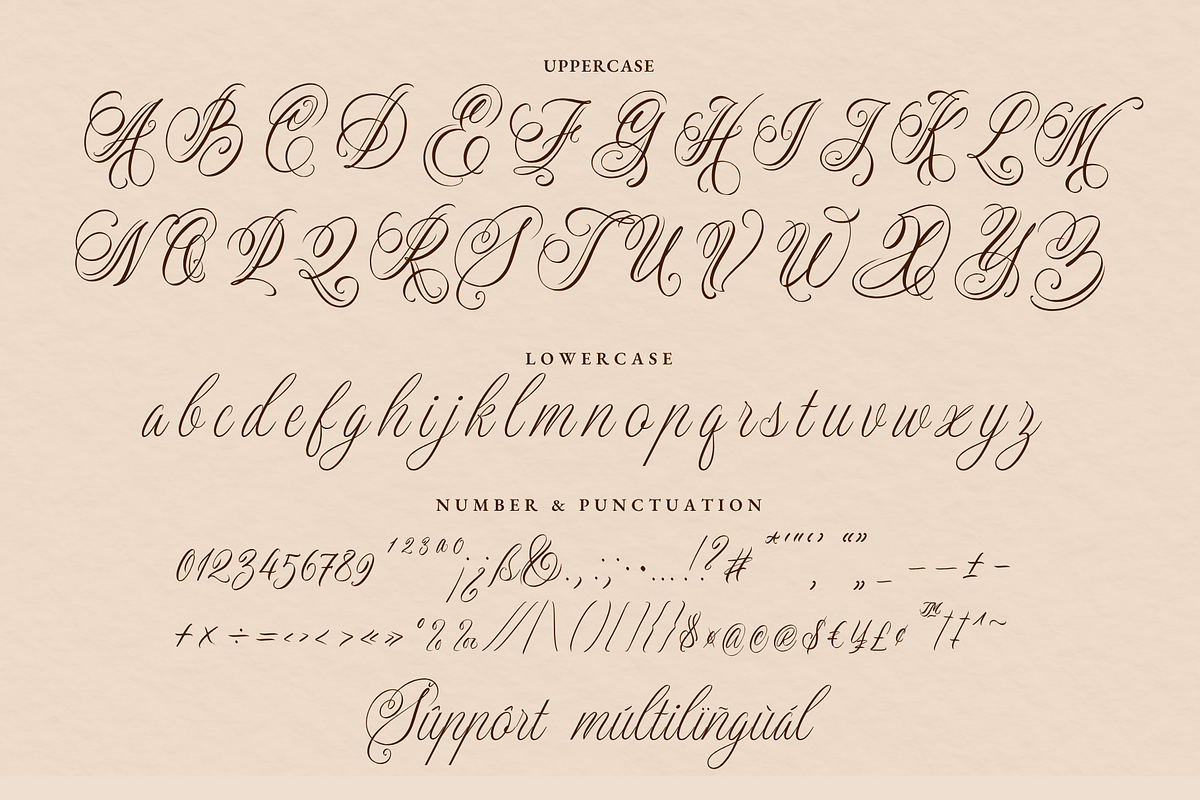 UPPERCASE
A B C D E F G H I J K L M
N O P Q R S T U V W X Y Z
LOWERCASE
a b c d e f g h i j k l m n o p q r s t u v w x y z
NUMBER & PUNCTUATION
0123456789 123ao ¡¿ß&.,:;·•…!?#*"'‘’“”‚„_—–±-
+×÷=‹›<>«»°%‰//|\()[]{}§¤@©®$€¥£¢™†‡^~
Šûppôrt múltilïñgùál